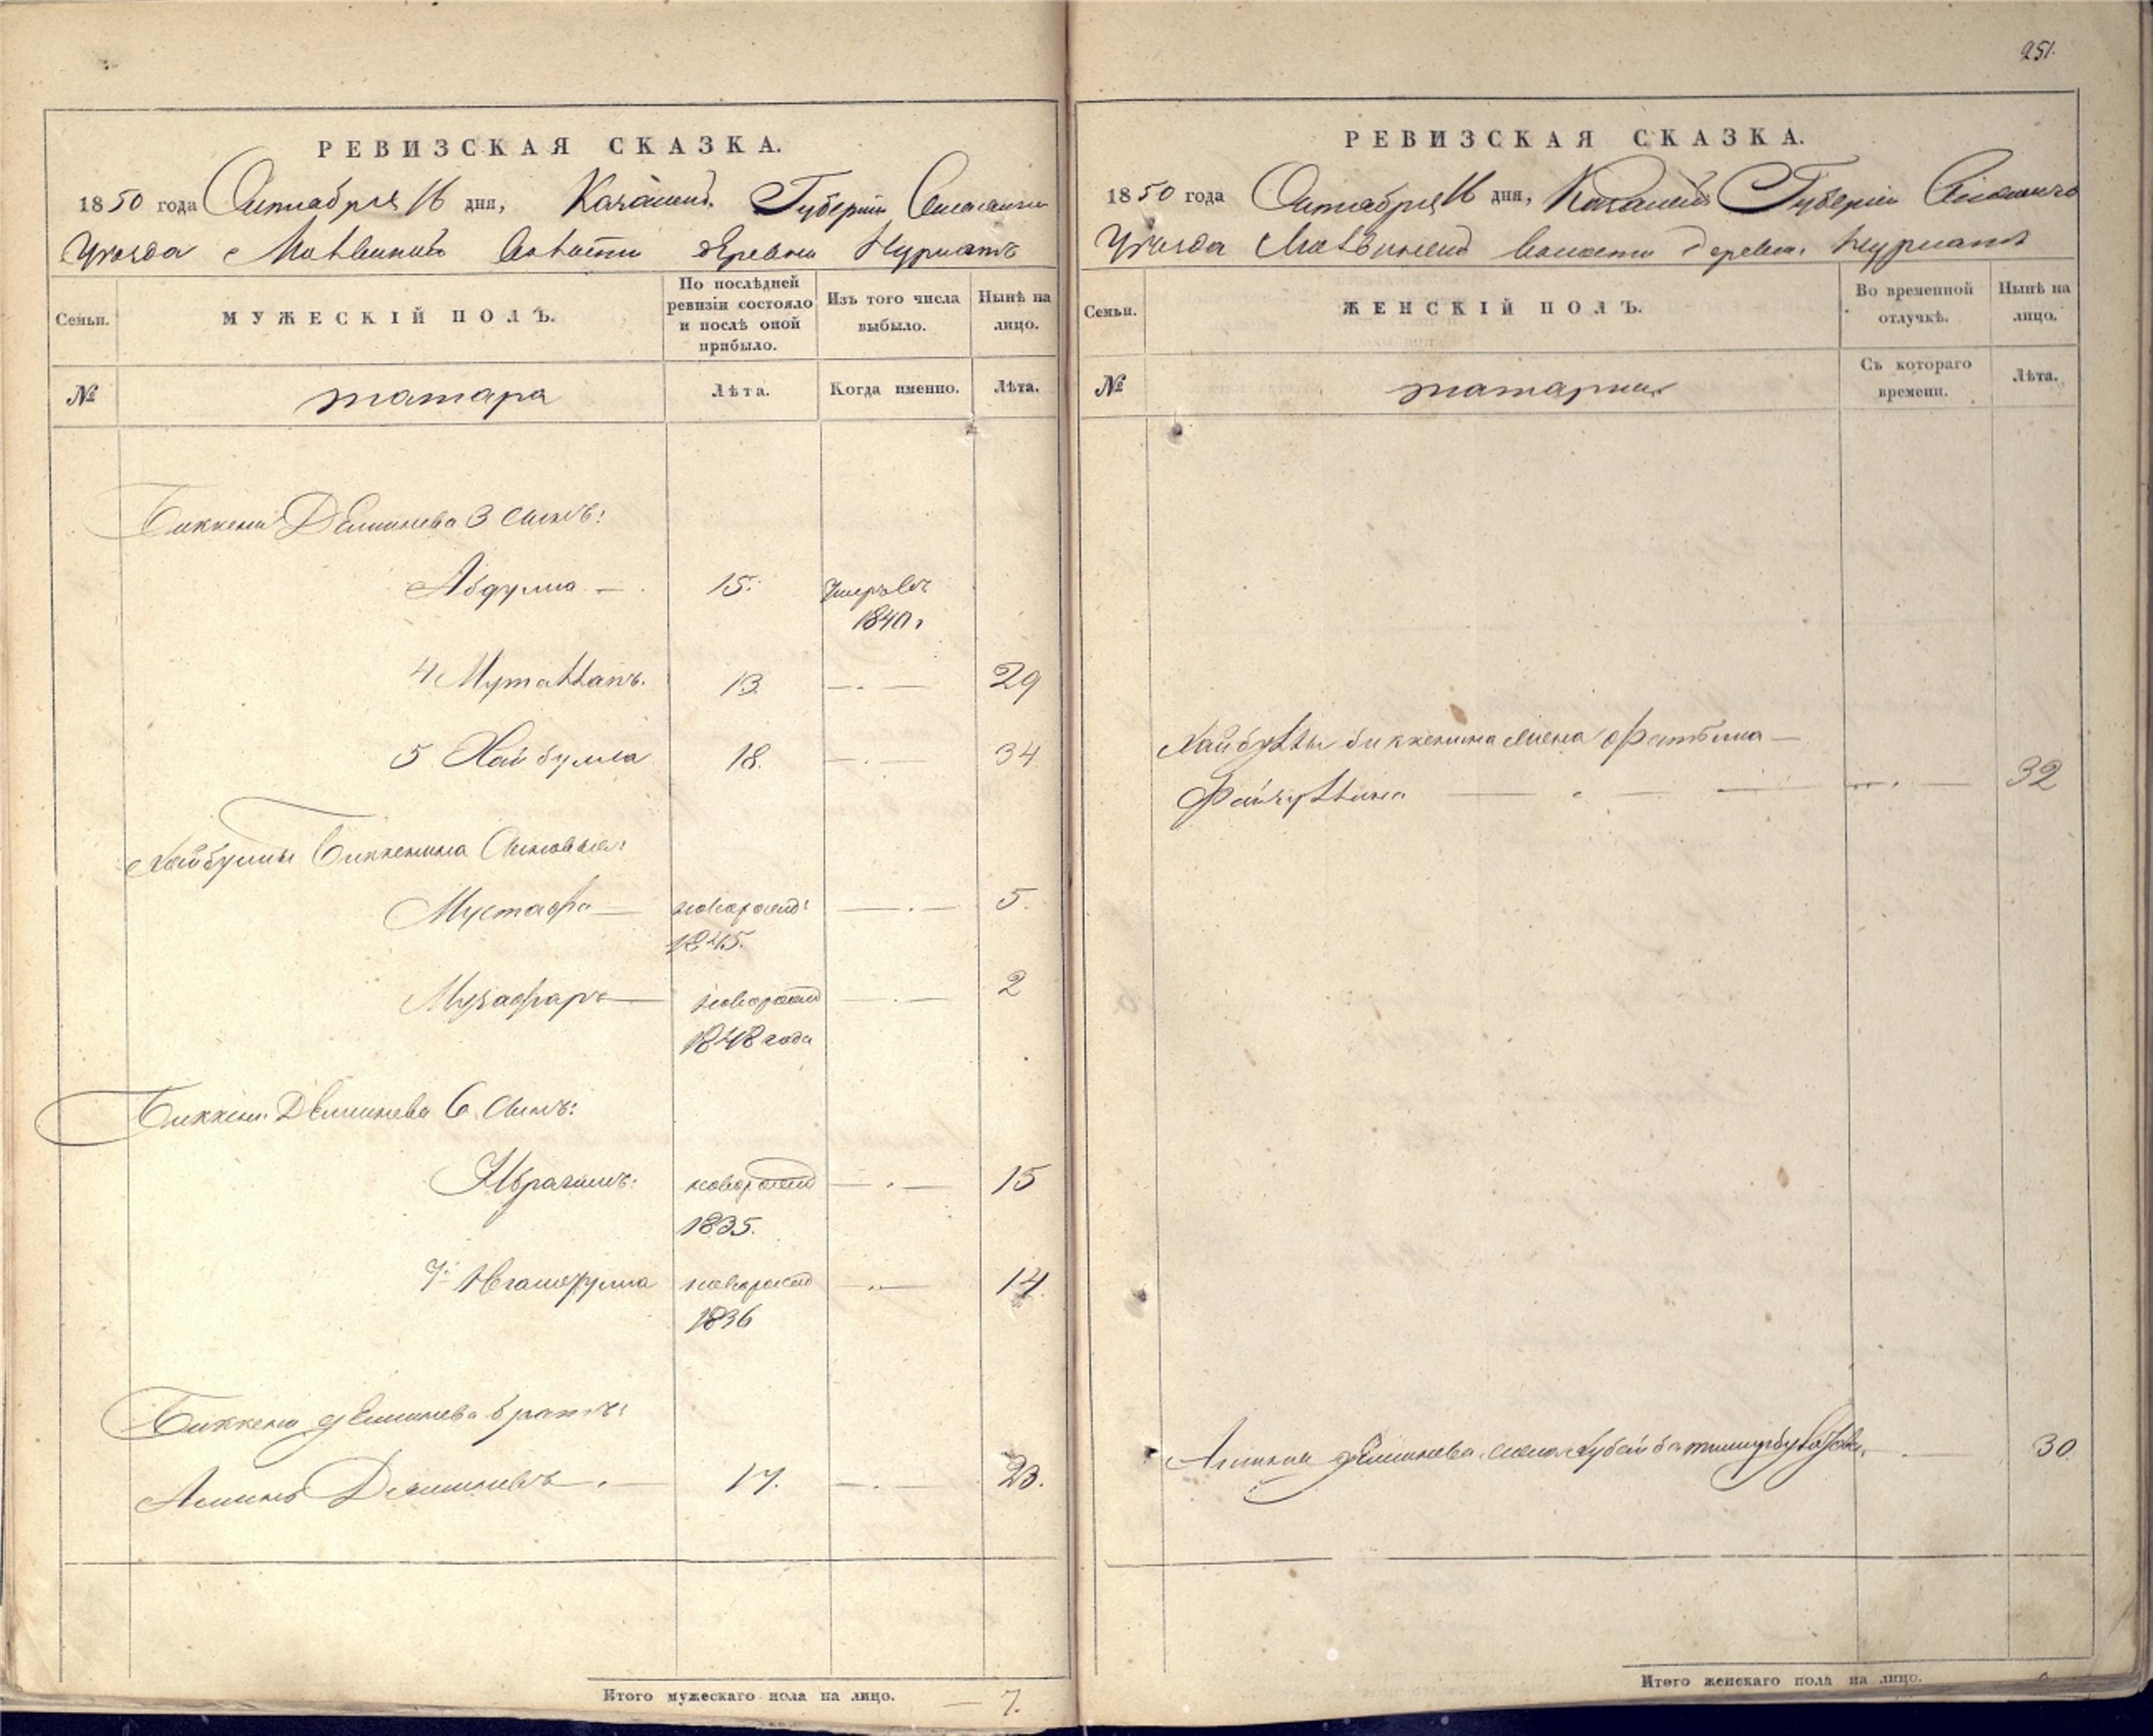 251.
РЕВИЗСКАЯ СКАЗКА.
1850 года Октября 16 дня, Казанской Губернии Спасскаго
Уѣзда волости деревни Нурлатъ
Семьи.
МУЖЕСКІЙ ПОЛЪ.
По послѣдней ревизіи состояло и послѣ оной прибыло.
Изъ того числа выбыло.
Нынѣ на лицо.
№
татара
Лѣта.
Когда именно.
Лѣта.
Биккени 3 сынъ:
Абдулла — 15. умеръ въ
1840г
4 Муталлапъ. 13. —.— 29
5 Хайбулла 18. —.— 34
Хайбуллы Биккенина сыновья:
Мустафа — новорожд: —.— 5.
1845.
Музафаръ — новорожд —.— 2
1848 года
Биккени 6 сынъ:
Ибрагимъ: новорожд —.— 15
1835.
7й новорожд —.— 14.
1836
Биккени братъ:
17. —.— 23.
Итого мужескаго пола на лицо. — 7.
РЕВИЗСКАЯ СКАЗКА.
1850 года Октября 16 дня, Казанской Губерніи
Уѣзда волости деревни Нурлатъ
Семьи.
ЖЕНСКІЙ ПОЛЪ.
Во временной отлучкѣ.
Нынѣ на лицо.
№
татарки
Съ котораго времени.
Лѣта.
Хайбуллы Биккенина жена Фатьима —
Файзуллина — 32
жена 30.
Итого женскаго пола на лицо.